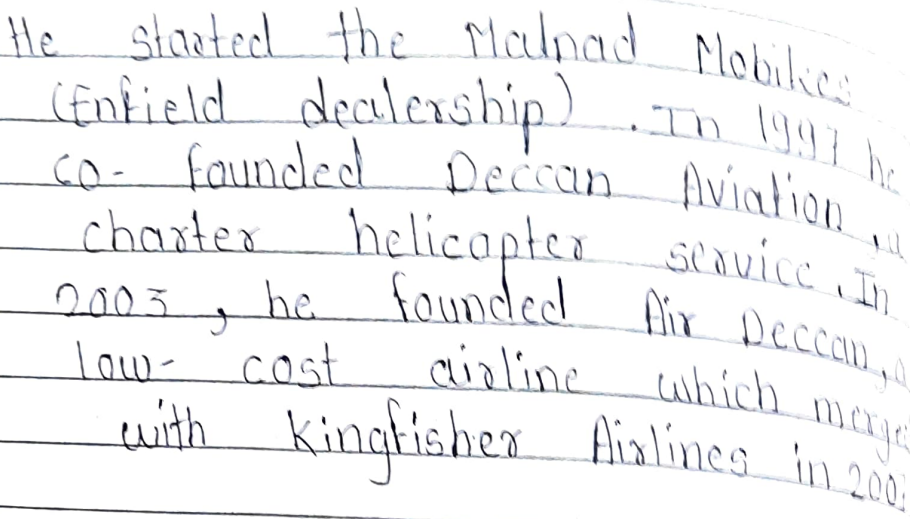 He started the Malnad Mobikes
(Enfield dealership). In 1997 he
co- founded Deccan Aviation, a
charter helicopter service. In
2003, he founded Air Deccan, a
low- cost airline which merge
with Kingfisher Airlines in